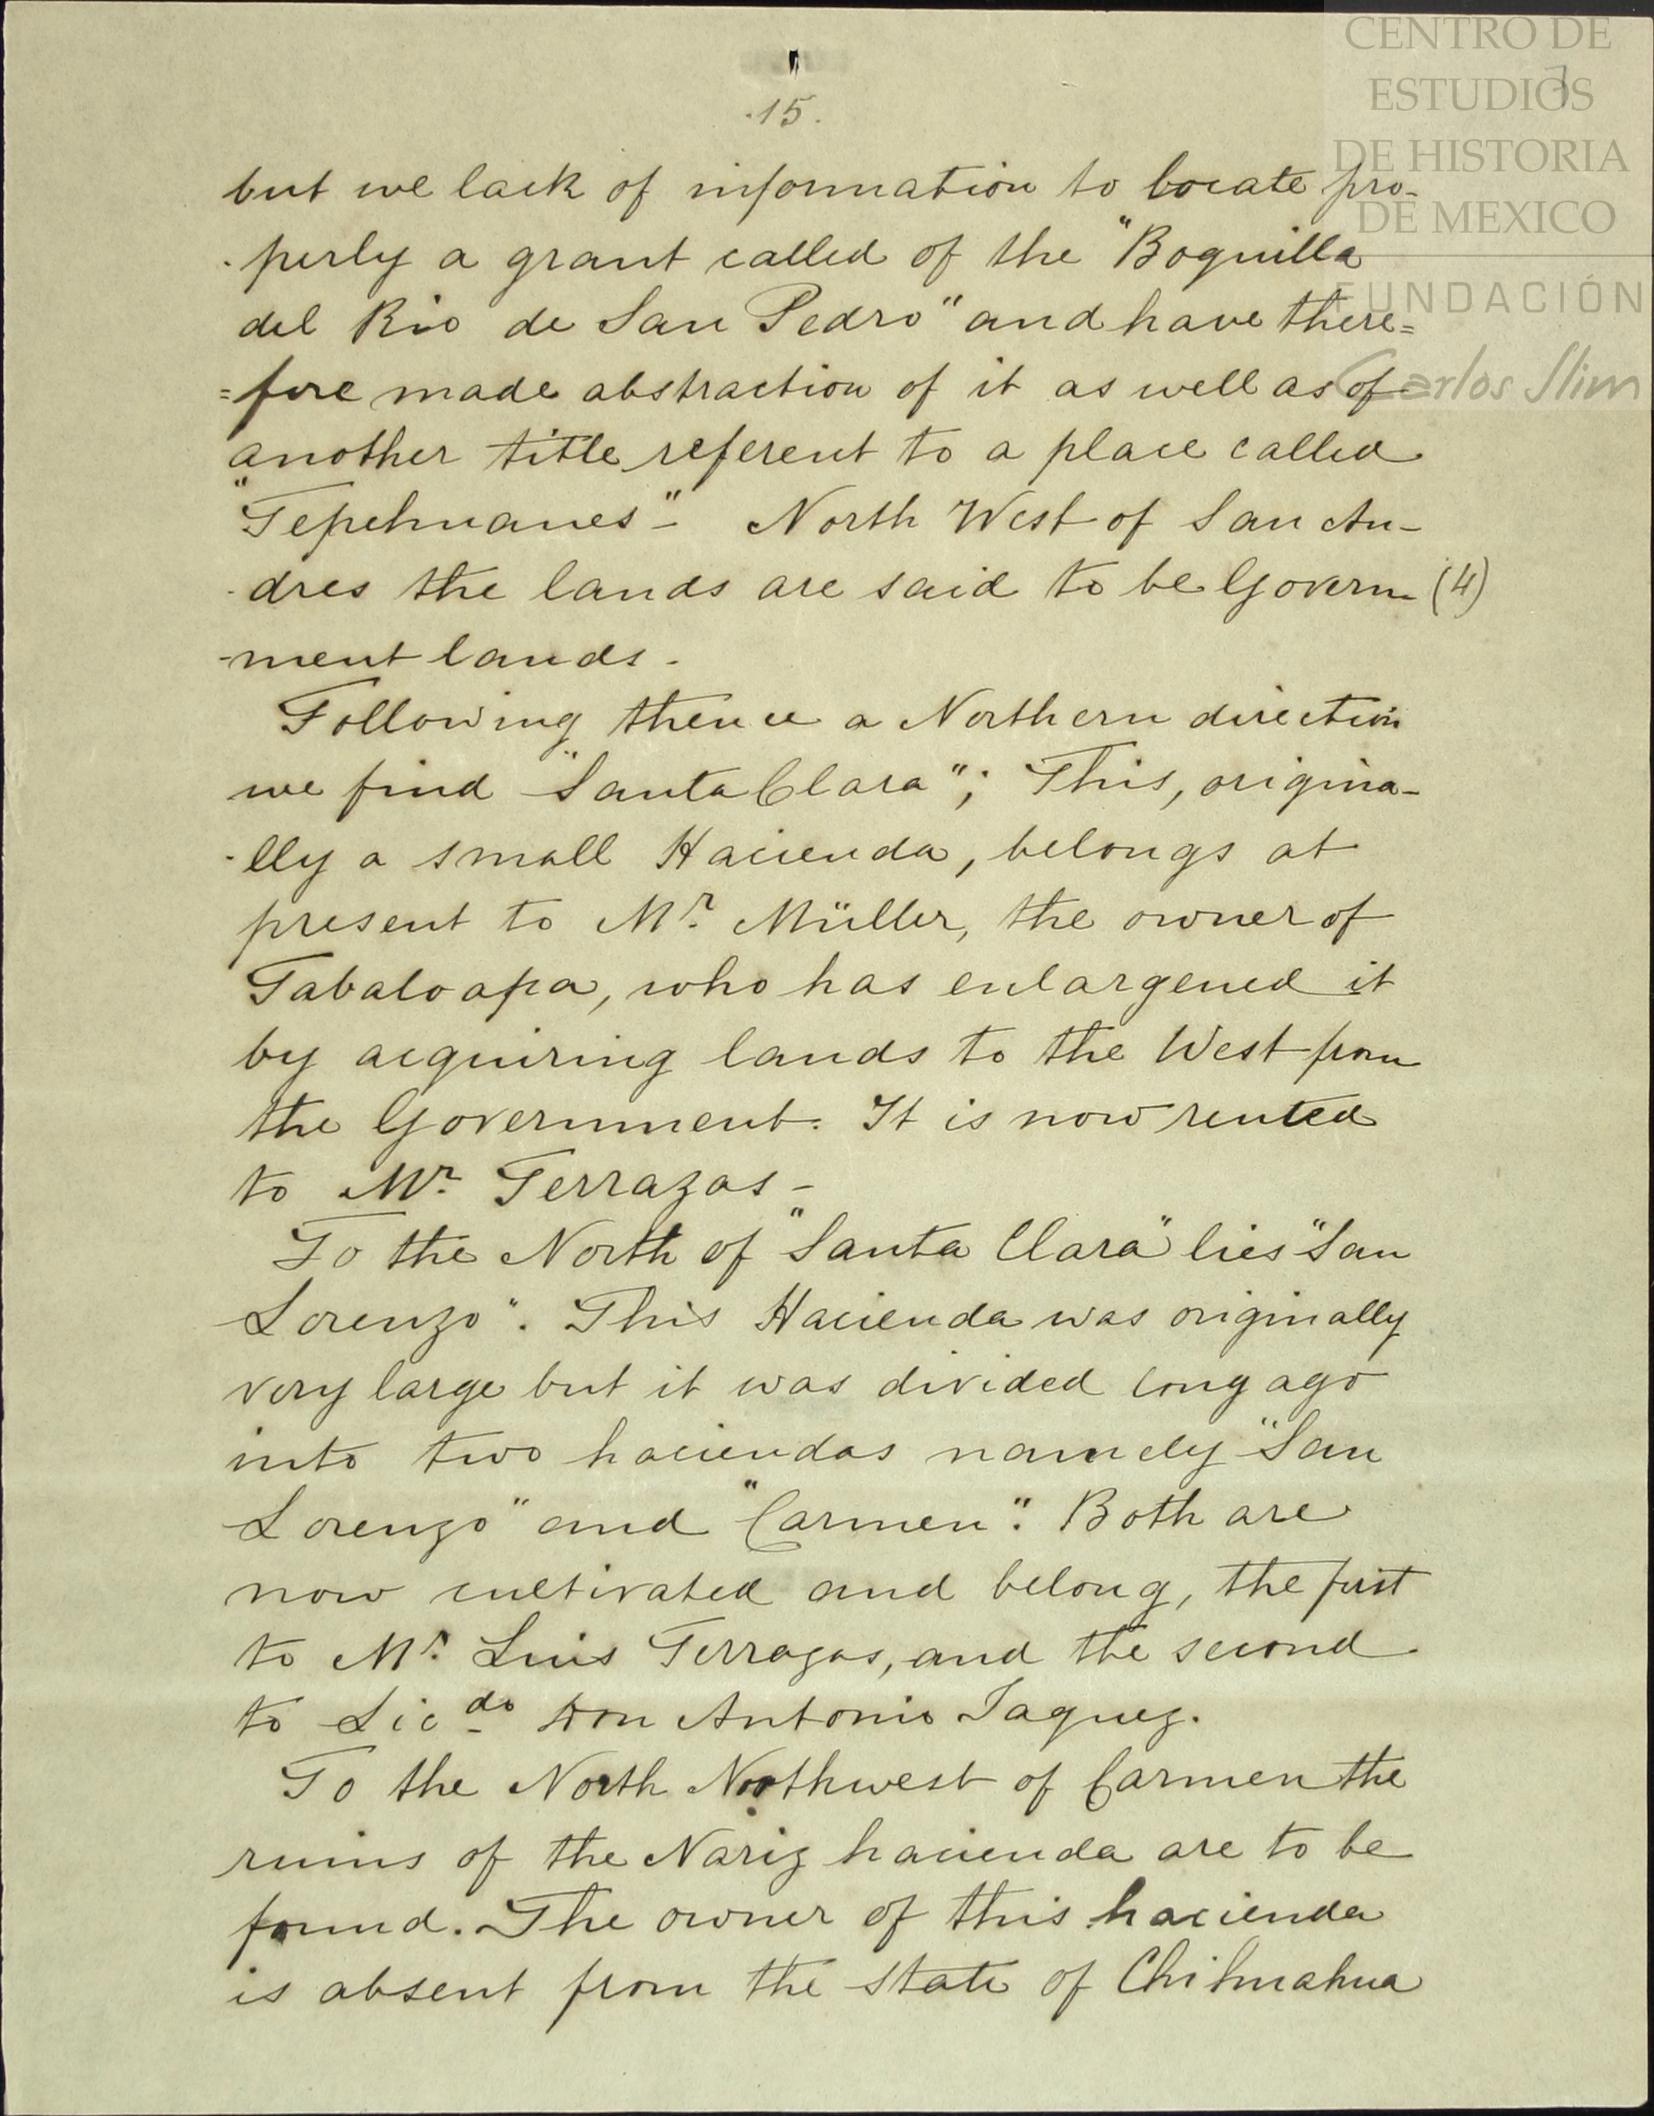 CENTRO DE
ESTUDIOS
DE HISTORIA
DE MEXICO
FUNDACIÓN
Carlos Slim
.15.
but we lack of information to locate pro-
-perly a grant called of the "Boquilla
del Rio de San Pedro" and have there=
=fore made abstraction of it as well as of
another title referent to a place called
"Tepehuanes"- North West of San An-
-dres the lands are said to be Govern (4)
-ment lands-
Following thence a Northern direction
we find "Santa Clara"; This, origina-
-lly a small Hacienda, belongs at
present to Mr. Müller, the owner of
Tabaloapa, who has enlargened it
by acquiring lands to the West from
the Government. It is now rented
to Mr. Terrazas-
To the North of "Santa Clara" lies "San
Lorenzo". This Hacienda was originally
very large but it was divided long ago
into two haciendas namely "San
Lorenzo" and "Carmen". Both are
now cultivated and belong, the first
to Mr. Luis Terrazas, and the second
to Licdo Don Antonio Jaquez.
To the North Northwest of Carmen the
ruins of the Nariz hacienda are to be
found. The owner of this hacienda
is absent from the state of Chihuahua